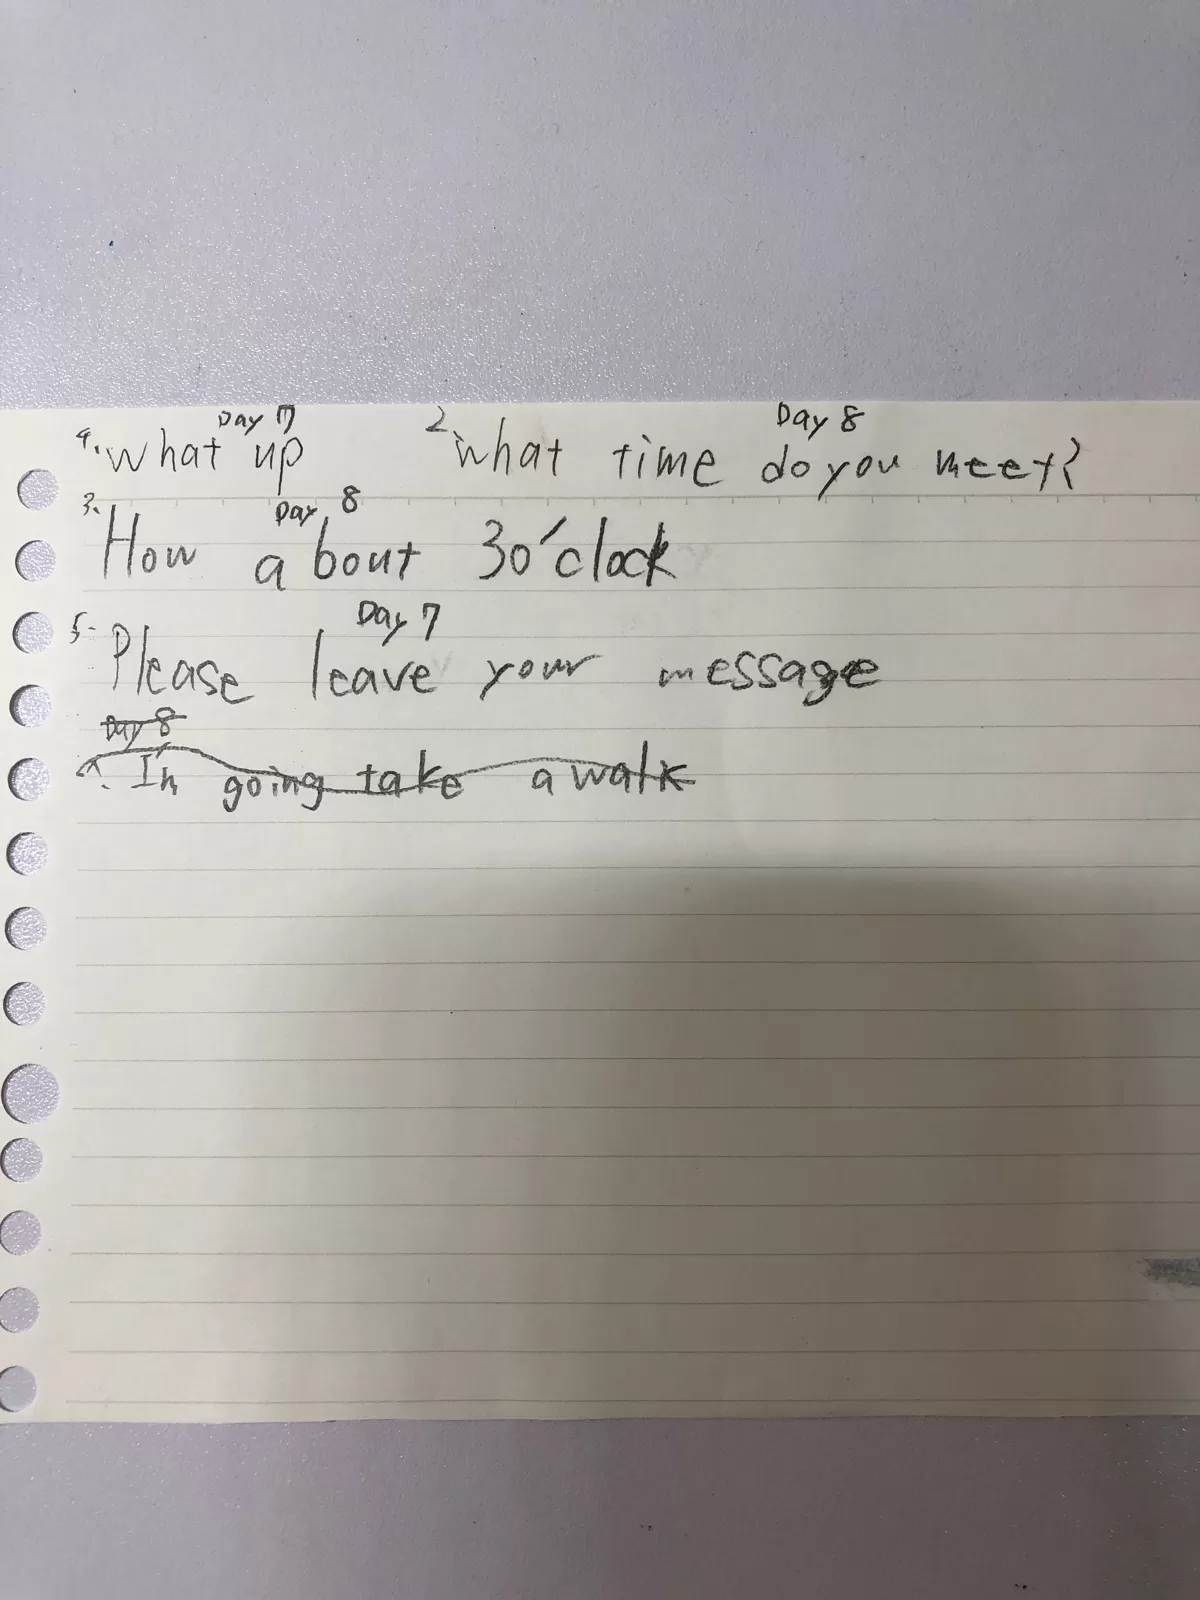 Day 7 Day 8
4. What up 2. What time do you meet?
3. Day 8
How about 3o'clock
Day 7
5. Please leave your message
Day 8
I'm going take a walk